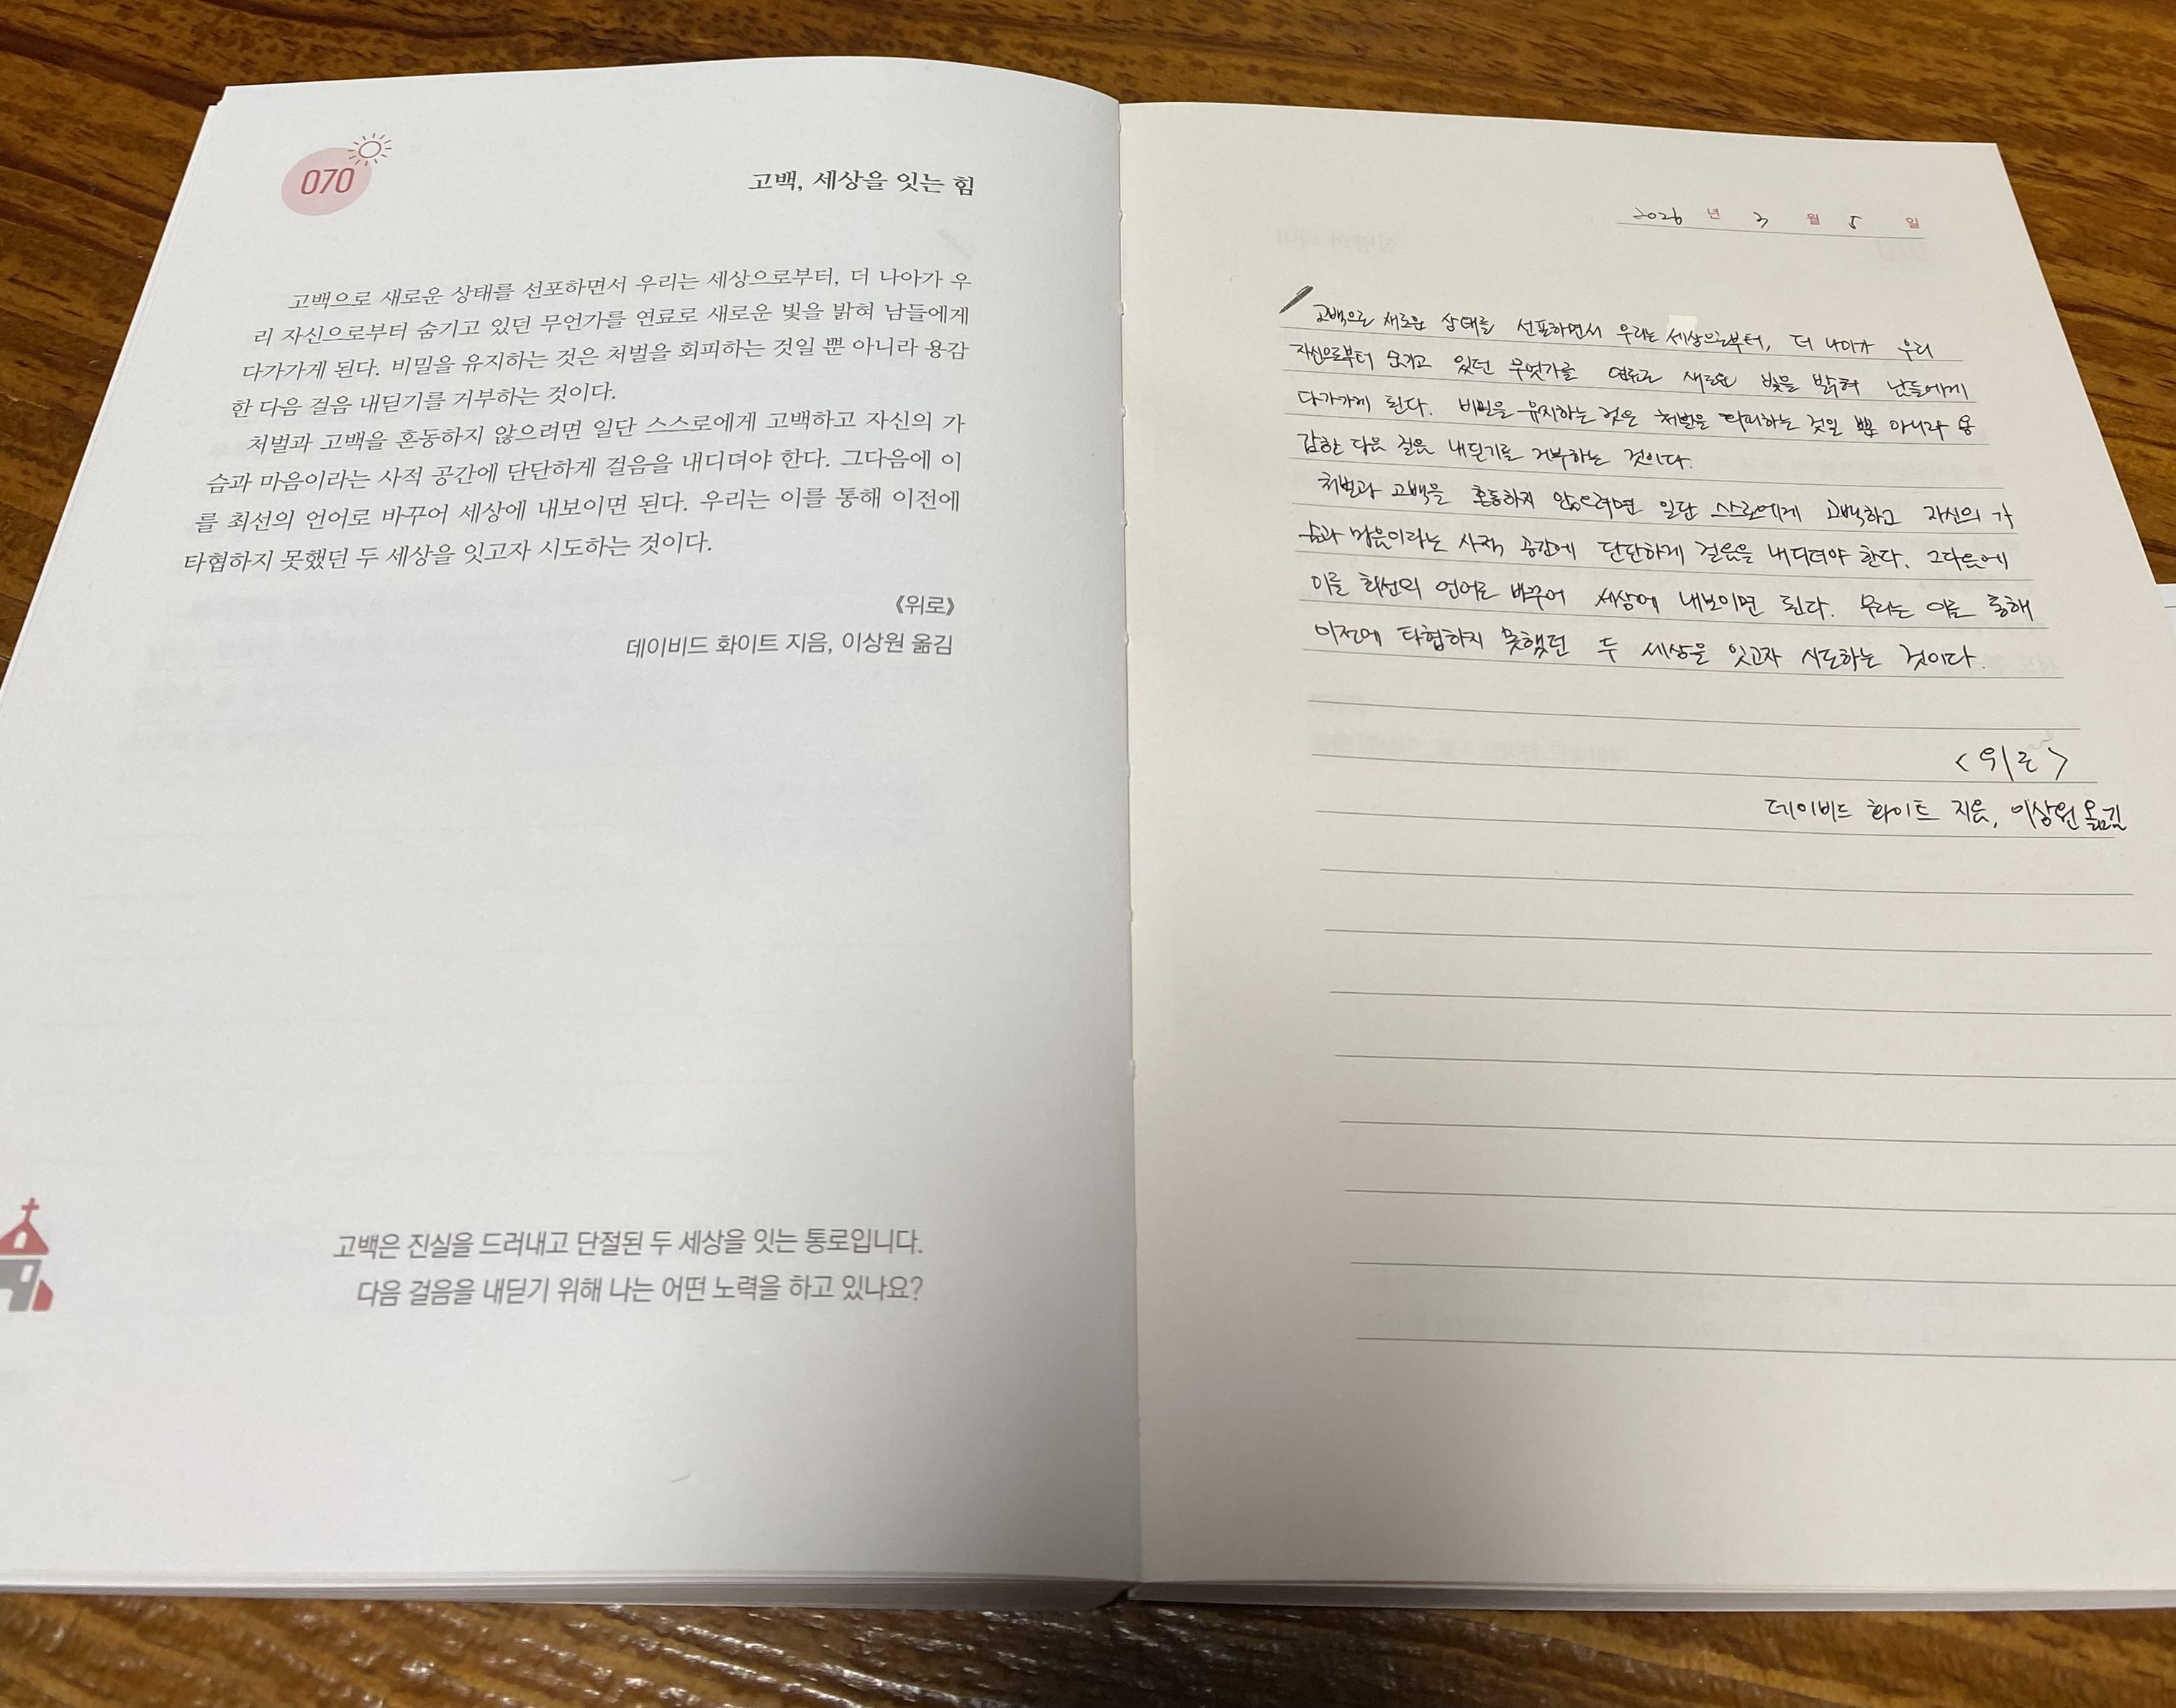 070
고백, 세상을 잇는 힘
고백으로 새로운 상태를 선포하면서 우리는 세상으로부터, 더 나아가 우
리 자신으로부터 숨기고 있던 무언가를 연료로 새로운 빛을 밝혀 남들에게
다가가게 된다. 비밀을 유지하는 것은 처벌을 회피하는 것일 뿐 아니라 용감
한 다음 걸음 내딛기를 거부하는 것이다.
처벌과 고백을 혼동하지 않으려면 일단 스스로에게 고백하고 자신의 가
슴과 마음이라는 사적 공간에 단단하게 걸음을 내디뎌야 한다. 그다음에 이
를 최선의 언어로 바꾸어 세상에 내보이면 된다. 우리는 이를 통해 이전에
타협하지 못했던 두 세상을 잇고자 시도하는 것이다.
《위로》
데이비드 화이트 지음, 이상원 옮김
고백은 진실을 드러내고 단절된 두 세상을 잇는 통로입니다.
다음 걸음을 내딛기 위해 나는 어떤 노력을 하고 있나요?
2026 년 3 월 5 일
고백으로 새로운 상태를 선포하면서 우리는 세상으로부터, 더 나아가 우리
자신으로부터 숨기고 있던 무엇가를 연료로 새로운 빛을 밝혀 남들에게
다가가게 된다. 비밀을 유지하는 것은 처벌을 회피하는 것일 뿐 아니라 용
감한 다음 걸음 내딛기를 거부하는 것이다.
처벌과 고백을 혼동하지 않으려면 일단 스스로에게 고백하고 자신의 가
슴과 마음이라는 사적 공간에 단단하게 걸음을 내디뎌야 한다. 그다음에
이를 최선의 언어로 바꾸어 세상에 내보이면 된다. 우리는 이를 통해
이전에 타협하지 못했던 두 세상을 잇고자 시도하는 것이다.
<위로>
데이비드 화이트 지음, 이상원 옮김